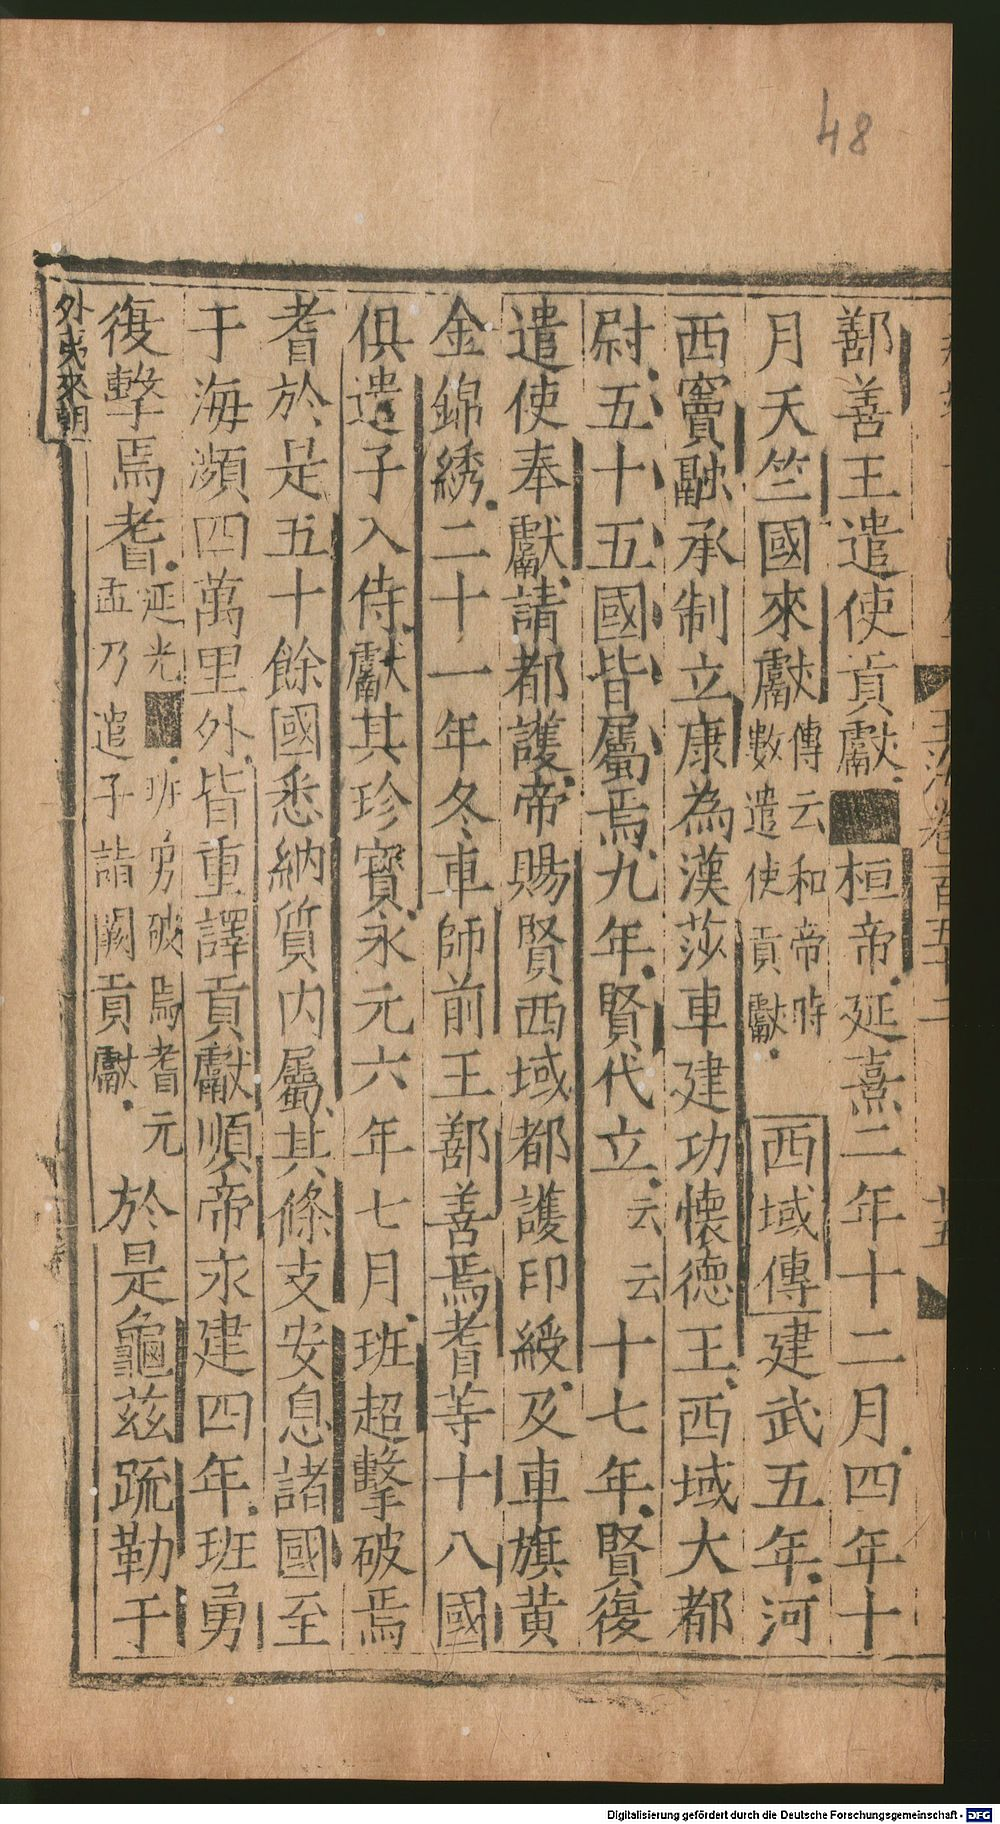 48
玉海卷百五十二
十五
鄯善王遣使貢獻 桓帝延熹二年十二月四年十
月天竺國來獻傳云和帝時數遣使貢獻 西域傳建武五年河
西竇融承制立康為漢莎車建功懷德王西域大都
尉五十五國皆屬焉九年賢代立云云十七年賢復
遣使奉獻請都護帝賜賢西域都護印綬及車旗黄
金錦綉二十一年冬車師前王鄯善焉耆等十八國
俱遣子入侍獻其珍寳永元六年七月班超擊破焉
耆於是五十餘國悉納質内屬其條支安息諸國至
于海瀕四萬里外皆重譯貢獻順帝永建四年班勇
復擊焉耆延光 班勇破焉耆元孟乃遣子詣闕貢獻 於是龜茲疏勒于
外夷來朝
Digitalisierung gefördert durch die Deutsche Forschungsgemeinschaft - DFG